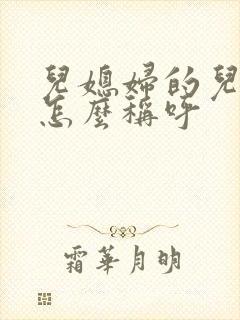 兒媳婦的兒
怎麼稱呼
霜華月明